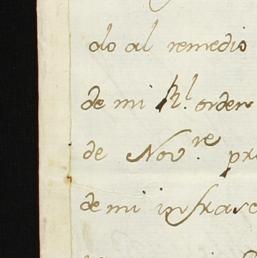 do al remedio
de mi Rl. orden
de Novre. pr
de mi infrasc